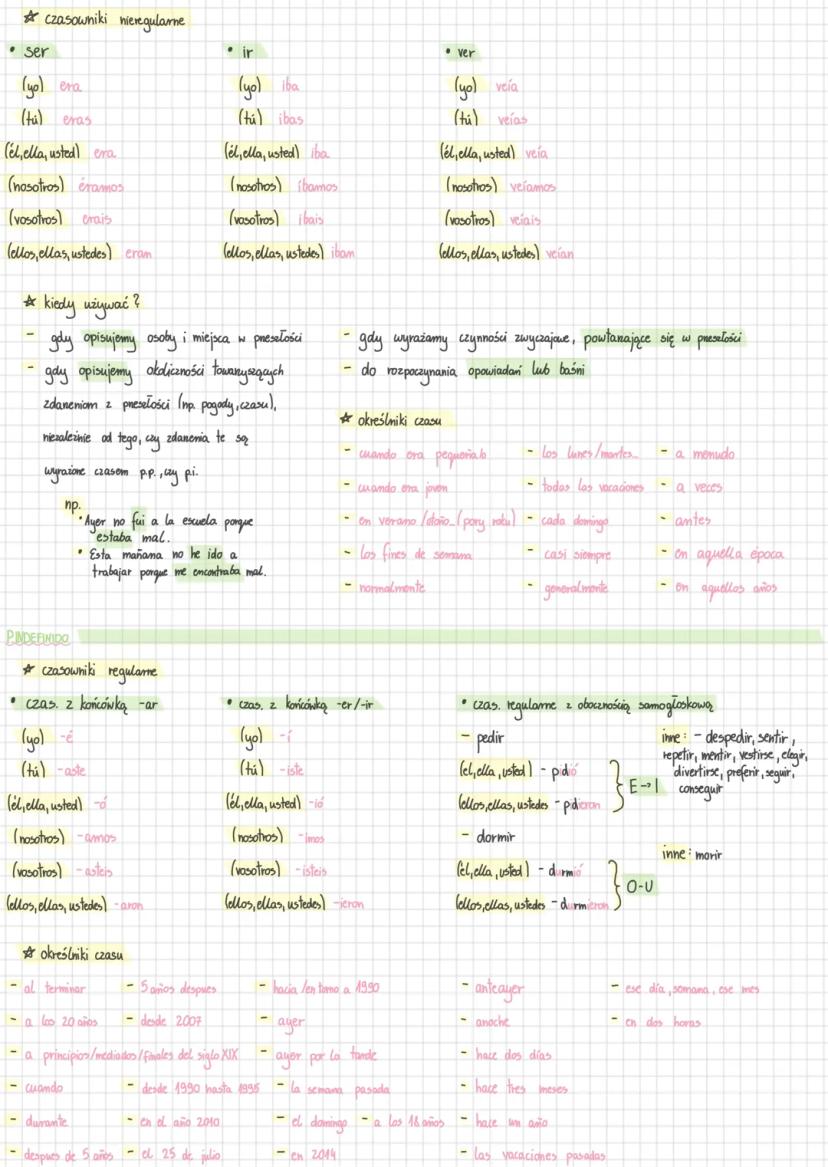 ☆ czasowniki nieregularne
• ser
(yo) era
(tú) eras
(él, ella, usted) era
(nosotros) éramos
(vosotros) erais
(ellos, ellas, ustedes) eran
• ir
(yo) iba
(tú) ibas
(él, ella, usted) iba
(nosotros) íbamos
(vosotros) ibais
(ellos, ellas, ustedes) iban
• ver
(yo) veía
(tú) veías
(él, ella, usted) veía
(nosotros) veíamos
(vosotros) veíais
(ellos, ellas, ustedes) veían
☆ kiedy używać?
- gdy opisujemy osoby i miejsca w przeszłości
- gdy opisujemy okoliczności towarzyszących
zdarzeniom z przeszłości (np. pogody, czasu),
niezależnie od tego, czy zdarzenia te są
wyrażone czasem p.p., czy p.i.
np.
• Ayer no fui a la escuela porque
estaba mal.
• Esta mañana no he ido a
trabajar porque me encontraba mal.
- gdy wyrażamy czynności zwyczajowe, powtarzające się w przeszłości
- do rozpoczynania opowiadań lub baśni
☆ określniki czasu
- cuando era pequeña/o
- cuando era joven
- en verano/otoño... (pory roku)
- los fines de semana
- normalmente
- los lunes/martes...
- todas las vacaciones
- cada domingo
- casi siempre
- generalmente
- a menudo
- a veces
- antes
- en aquella época
- en aquellos años
P.INDEFINIDO
☆ czasowniki regularne
• czas. z końcówką -ar
(yo) -é
(tú) -aste
(él, ella, usted) -ó
(nosotros) -amos
(vosotros) -asteis
(ellos, ellas, ustedes) -aron
• czas. z końcówką -er/-ir
(yo) -í
(tú) -iste
(él, ella, usted) -ió
(nosotros) -imos
(vosotros) -isteis
(ellos, ellas, ustedes) -ieron
• czas. regularne z obocznością samogłoskową
- pedir
(el, ella, usted) - pidió
(ellos, ellas, ustedes - pidieron
E→I
inne: - despedir, sentir,
repetir, mentir, vestirse, elegir,
divertirse, preferir, seguir,
conseguir
- dormir
(él, ella, usted) - durmió
(ellos, ellas, ustedes - durmieron
O-U
inne: morir
☆ określniki czasu
- al terminar
- 5 años despues
- hacia/en torno a 1990
- a los 20 años
- desde 2007
- ayer
- a principios/mediados/finales del siglo XIX
- ayer por la tarde
- cuando
- desde 1990 hasta 1995
- la semana pasada
- durante
- en el año 2010
- el domingo
- a los 18 años
- despues de 5 años
- el 25 de julio
- en 2014
- anteayer
- anoche
- hace dos días
- hace tres meses
- hace un año
- las vacaciones pasadas
- ese día, semana, ese mes
- en dos horas